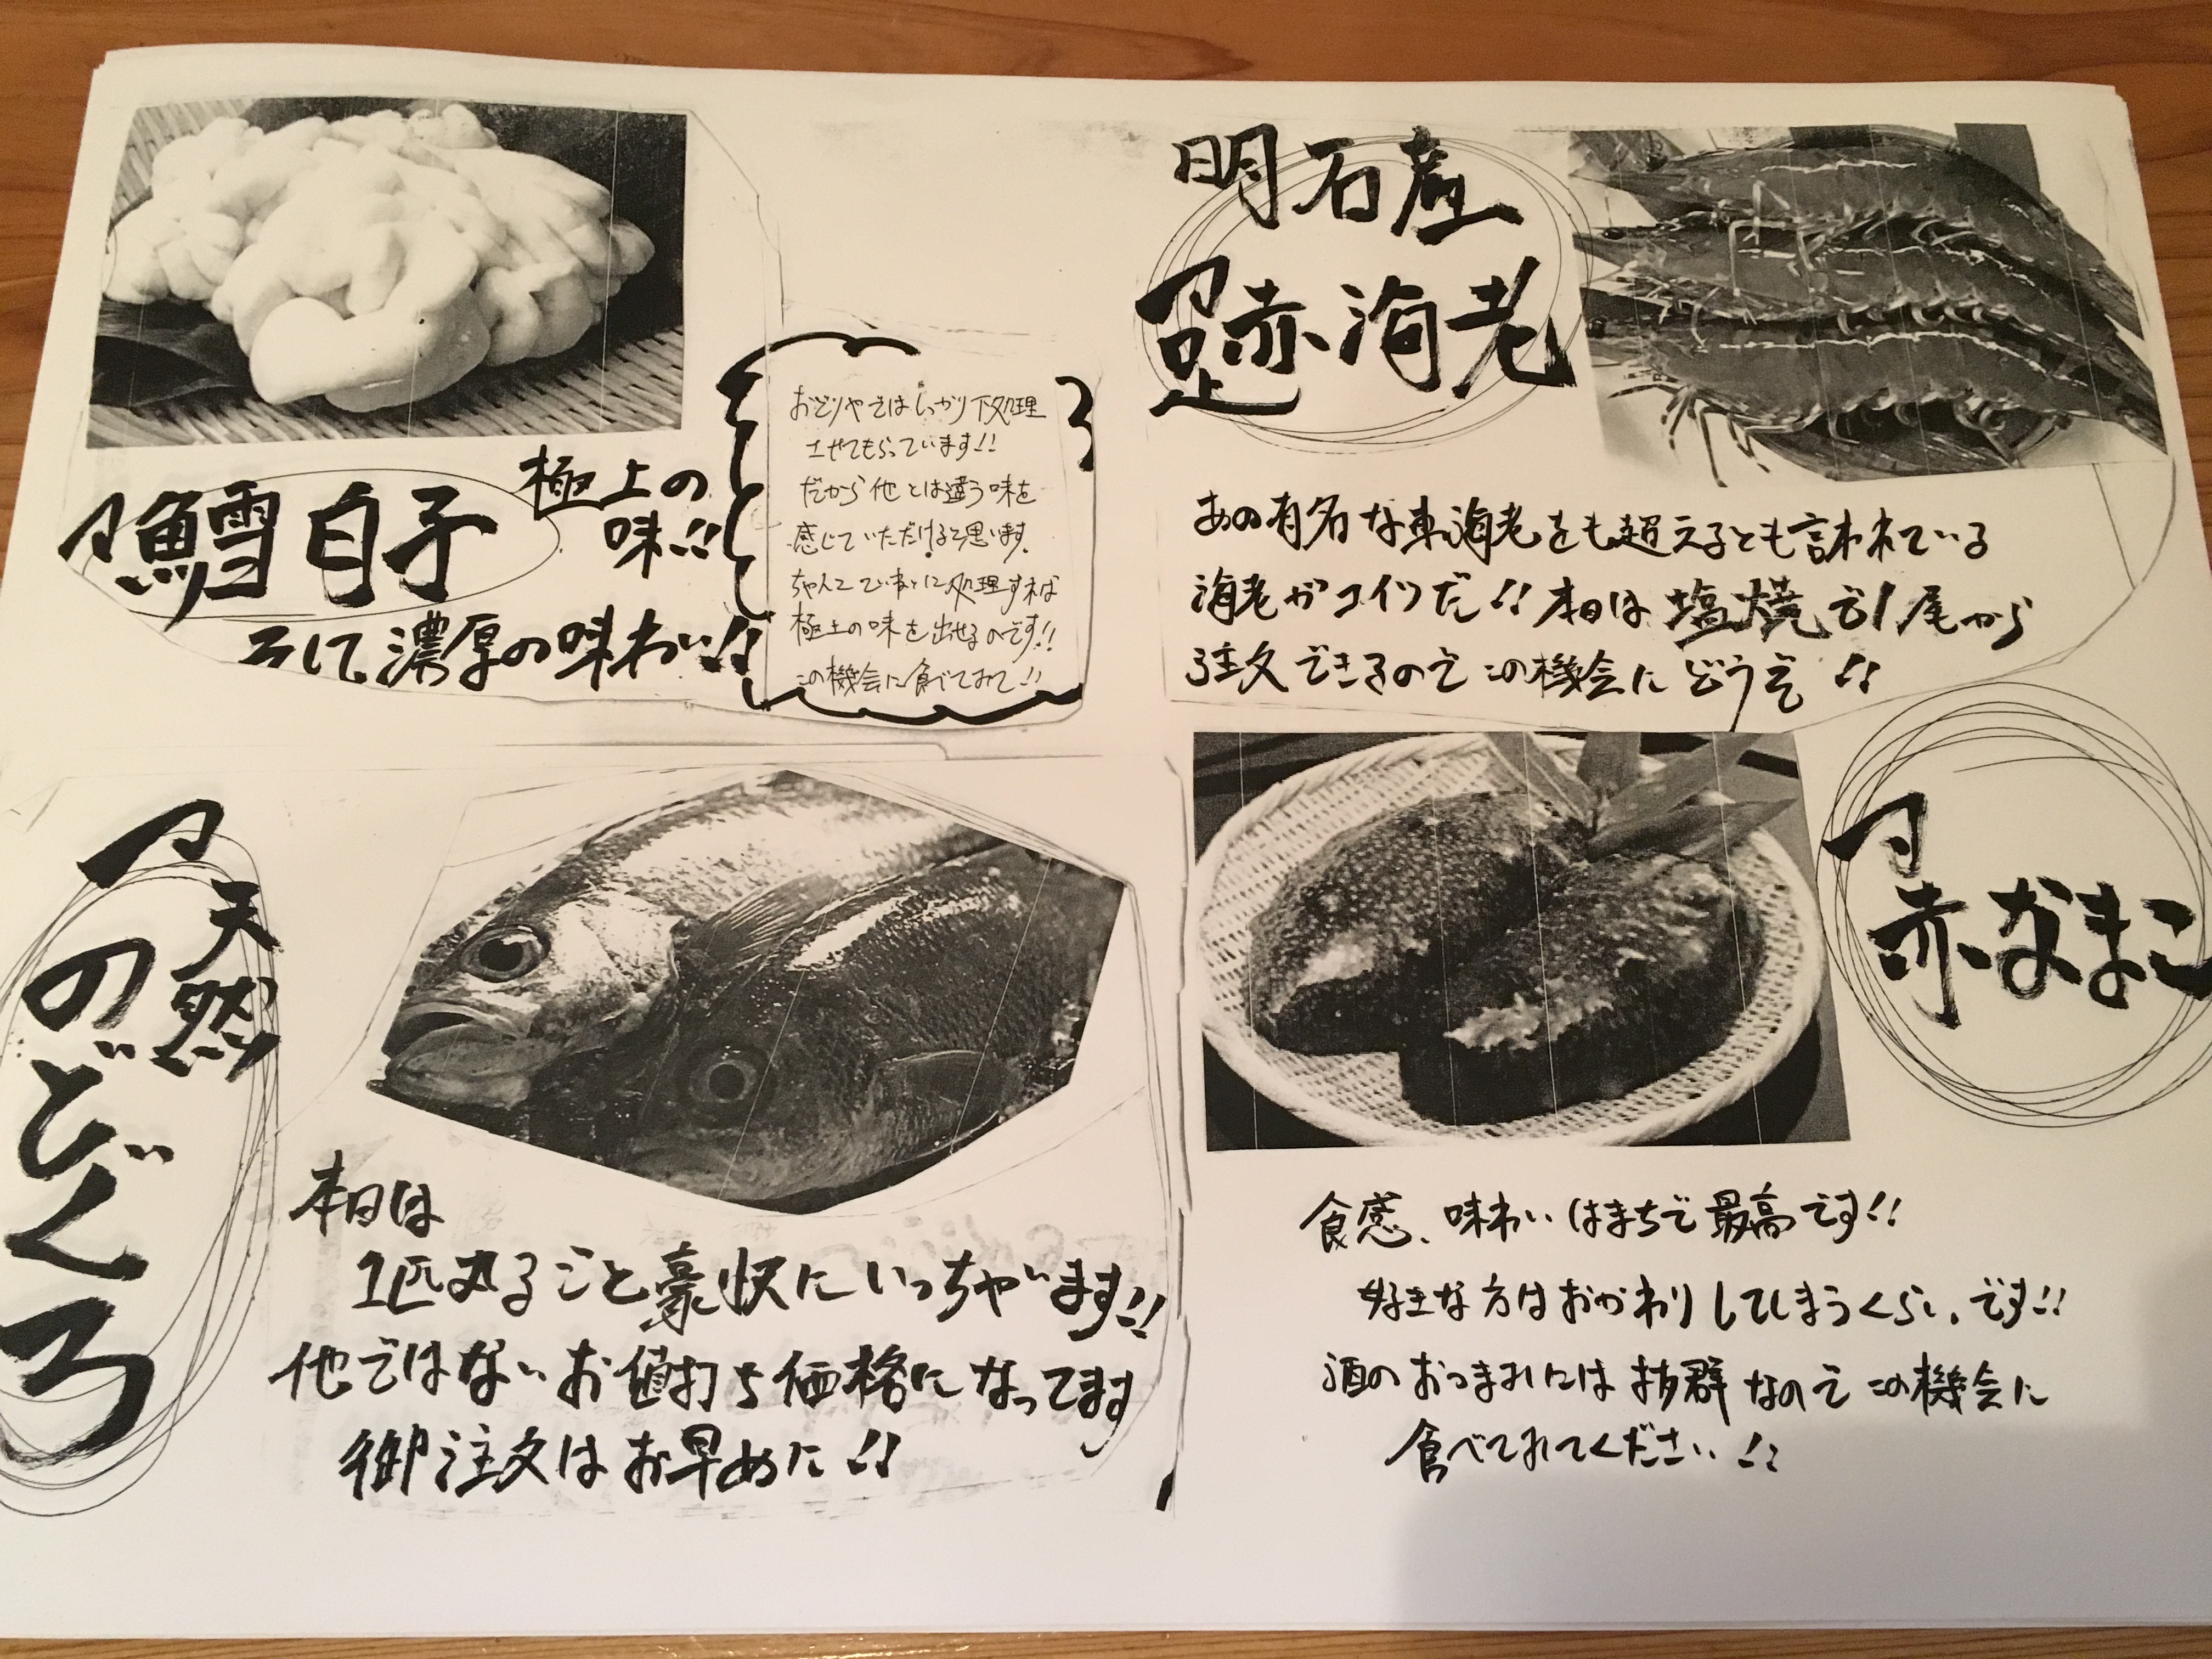 鱈白子
極上の
味!!
そして濃厚の味わい!!
おどりやではしっかり下処理
させてもらっています!!
だから他とは違う味を
感じていただけると思います。
ちゃんとていねいに処理すれば
極上の味を出せるのです!!
この機会に食べてみて!!
明石産
足赤海老
あの有名な車海老をも超えるとも言われている
海老がコイツだ!!本日は塩焼で1尾から
注文できるのでこの機会にどうぞ!!
天然
のどぐろ
本日は
1匹丸ごと豪快にいっちゃいます!!
他ではないお値打ち価格になってます
御注文はお早めに!!
赤なまこ
食感、味わいはまぢで最高です!!
好きな方はおかわりしてしまうくらいです!!
酒のおつまみには抜群なのでこの機会に
食べてみてください!!